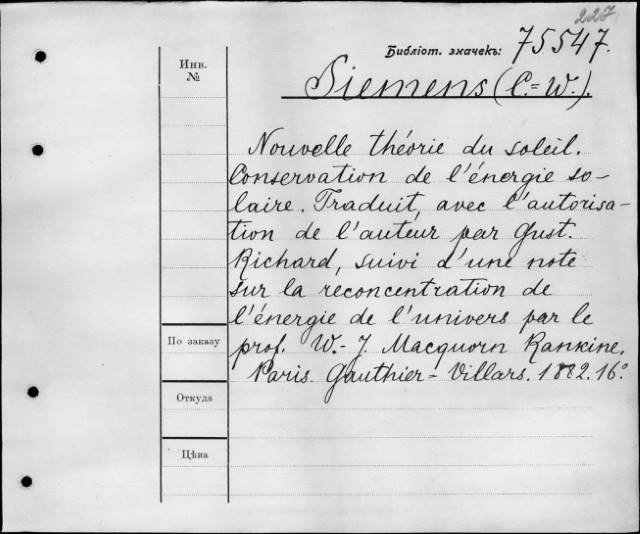 227
Библіот. значекъ: 75547.
Инв.
№
Siemens (C.=W.).
Nouvelle théorie du soleil.
Conservation de l'énergie so-
laire. Traduit, avec l'autorisa-
tion de l'auteur par Gust.
Richard, suivi d'une note
sur la reconcentration de
l'énergie de l'univers par le
По заказу
prof. W.-J. Macquorn Rankine.
Paris. Gauthier=Villars. 1882. 16°.
Откуда
Цѣна